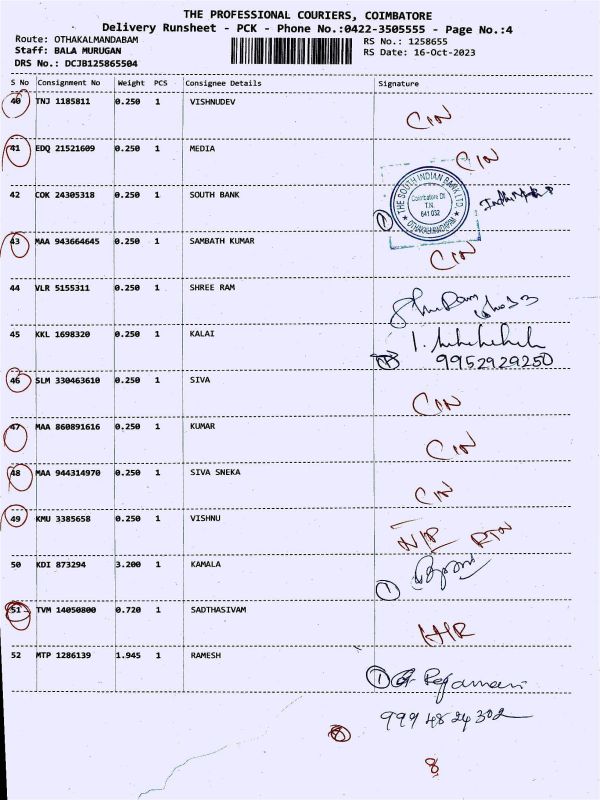 THE PROFESSIONAL COURIERS, COIMBATORE
Delivery Runsheet - PCK - Phone No.:0422-3505555 - Page No.:4
Route: OTHAKALMANDABAM
RS No.: 1258655
Staff: BALA MURUGAN
RS Date: 16-Oct-2023
DRS No.: DCJB125865504
S No Consignment No Weight PCS Consignee Details Signature
40 TNJ 1185811 0.250 1 VISHNUDEV CIN
41 EDQ 21521609 0.250 1 MEDIA CIN
42 COK 24305318 0.250 1 SOUTH BANK
THE SOUTH INDIAN BANK LTD.
Coimbatore Dt
T.N.
641 032
OTHAKALMANDAPAM
43 MAA 943664645 0.250 1 SAMBATH KUMAR CIN
44 VLR 5155311 0.250 1 SHREE RAM
45 KKL 1698320 0.250 1 KALAI
9952929250
46 SLM 330463610 0.250 1 SIVA CIN
47 MAA 860891616 0.250 1 KUMAR CIN
48 MAA 944314970 0.250 1 SIVA SNEKA CIN
49 KMU 3385658 0.250 1 VISHNU N/P RTN
50 KDI 873294 3.200 1 KAMALA
1
51 TVM 14050800 0.720 1 SADTHASIVAM
52 MTP 1286139 1.945 1 RAMESH
1
9994824302
8